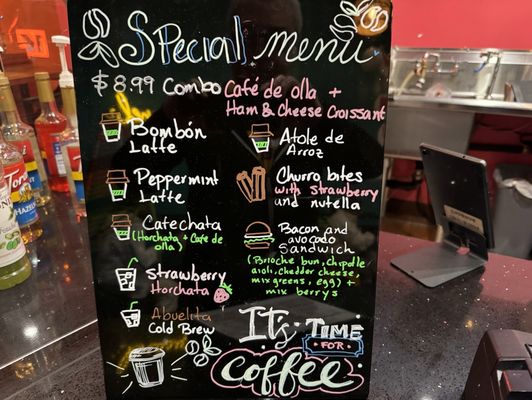 Special menu
$8.99 Combo Café de olla +
Ham & Cheese Croissant
Bombón
Latte
Peppermint
Latte
Catechata
(Horchata + Cafe de
olla)
Strawberry
Horchata
Abuelita
Cold Brew
Atole de
Arroz
Churro bites
with strawberry
and nutella
Bacon and
avocado
Sandwich
(Brioche bun, Chipotle
aioli, chedder cheese,
mix greens, egg) +
mix berrys
It's TIME
FOR
Coffee